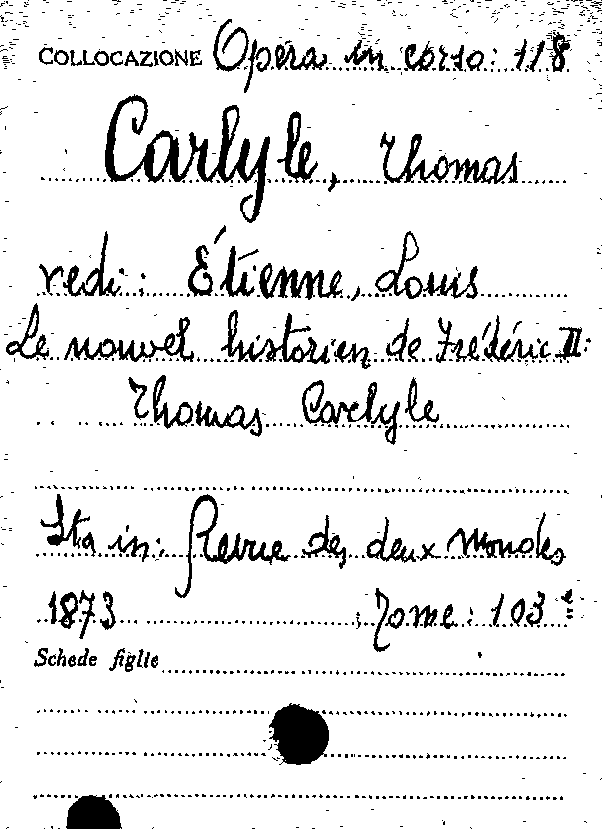 COLLOCAZIONE Opera in corso: 118
Carlyle, Thomas
vedi: Étienne, Louis
Le nouvel historien de Frédéric II:
Thomas Carlyle
Sta in: Revue des deux Mondes
1873 Tome: 103e
Schede figlie